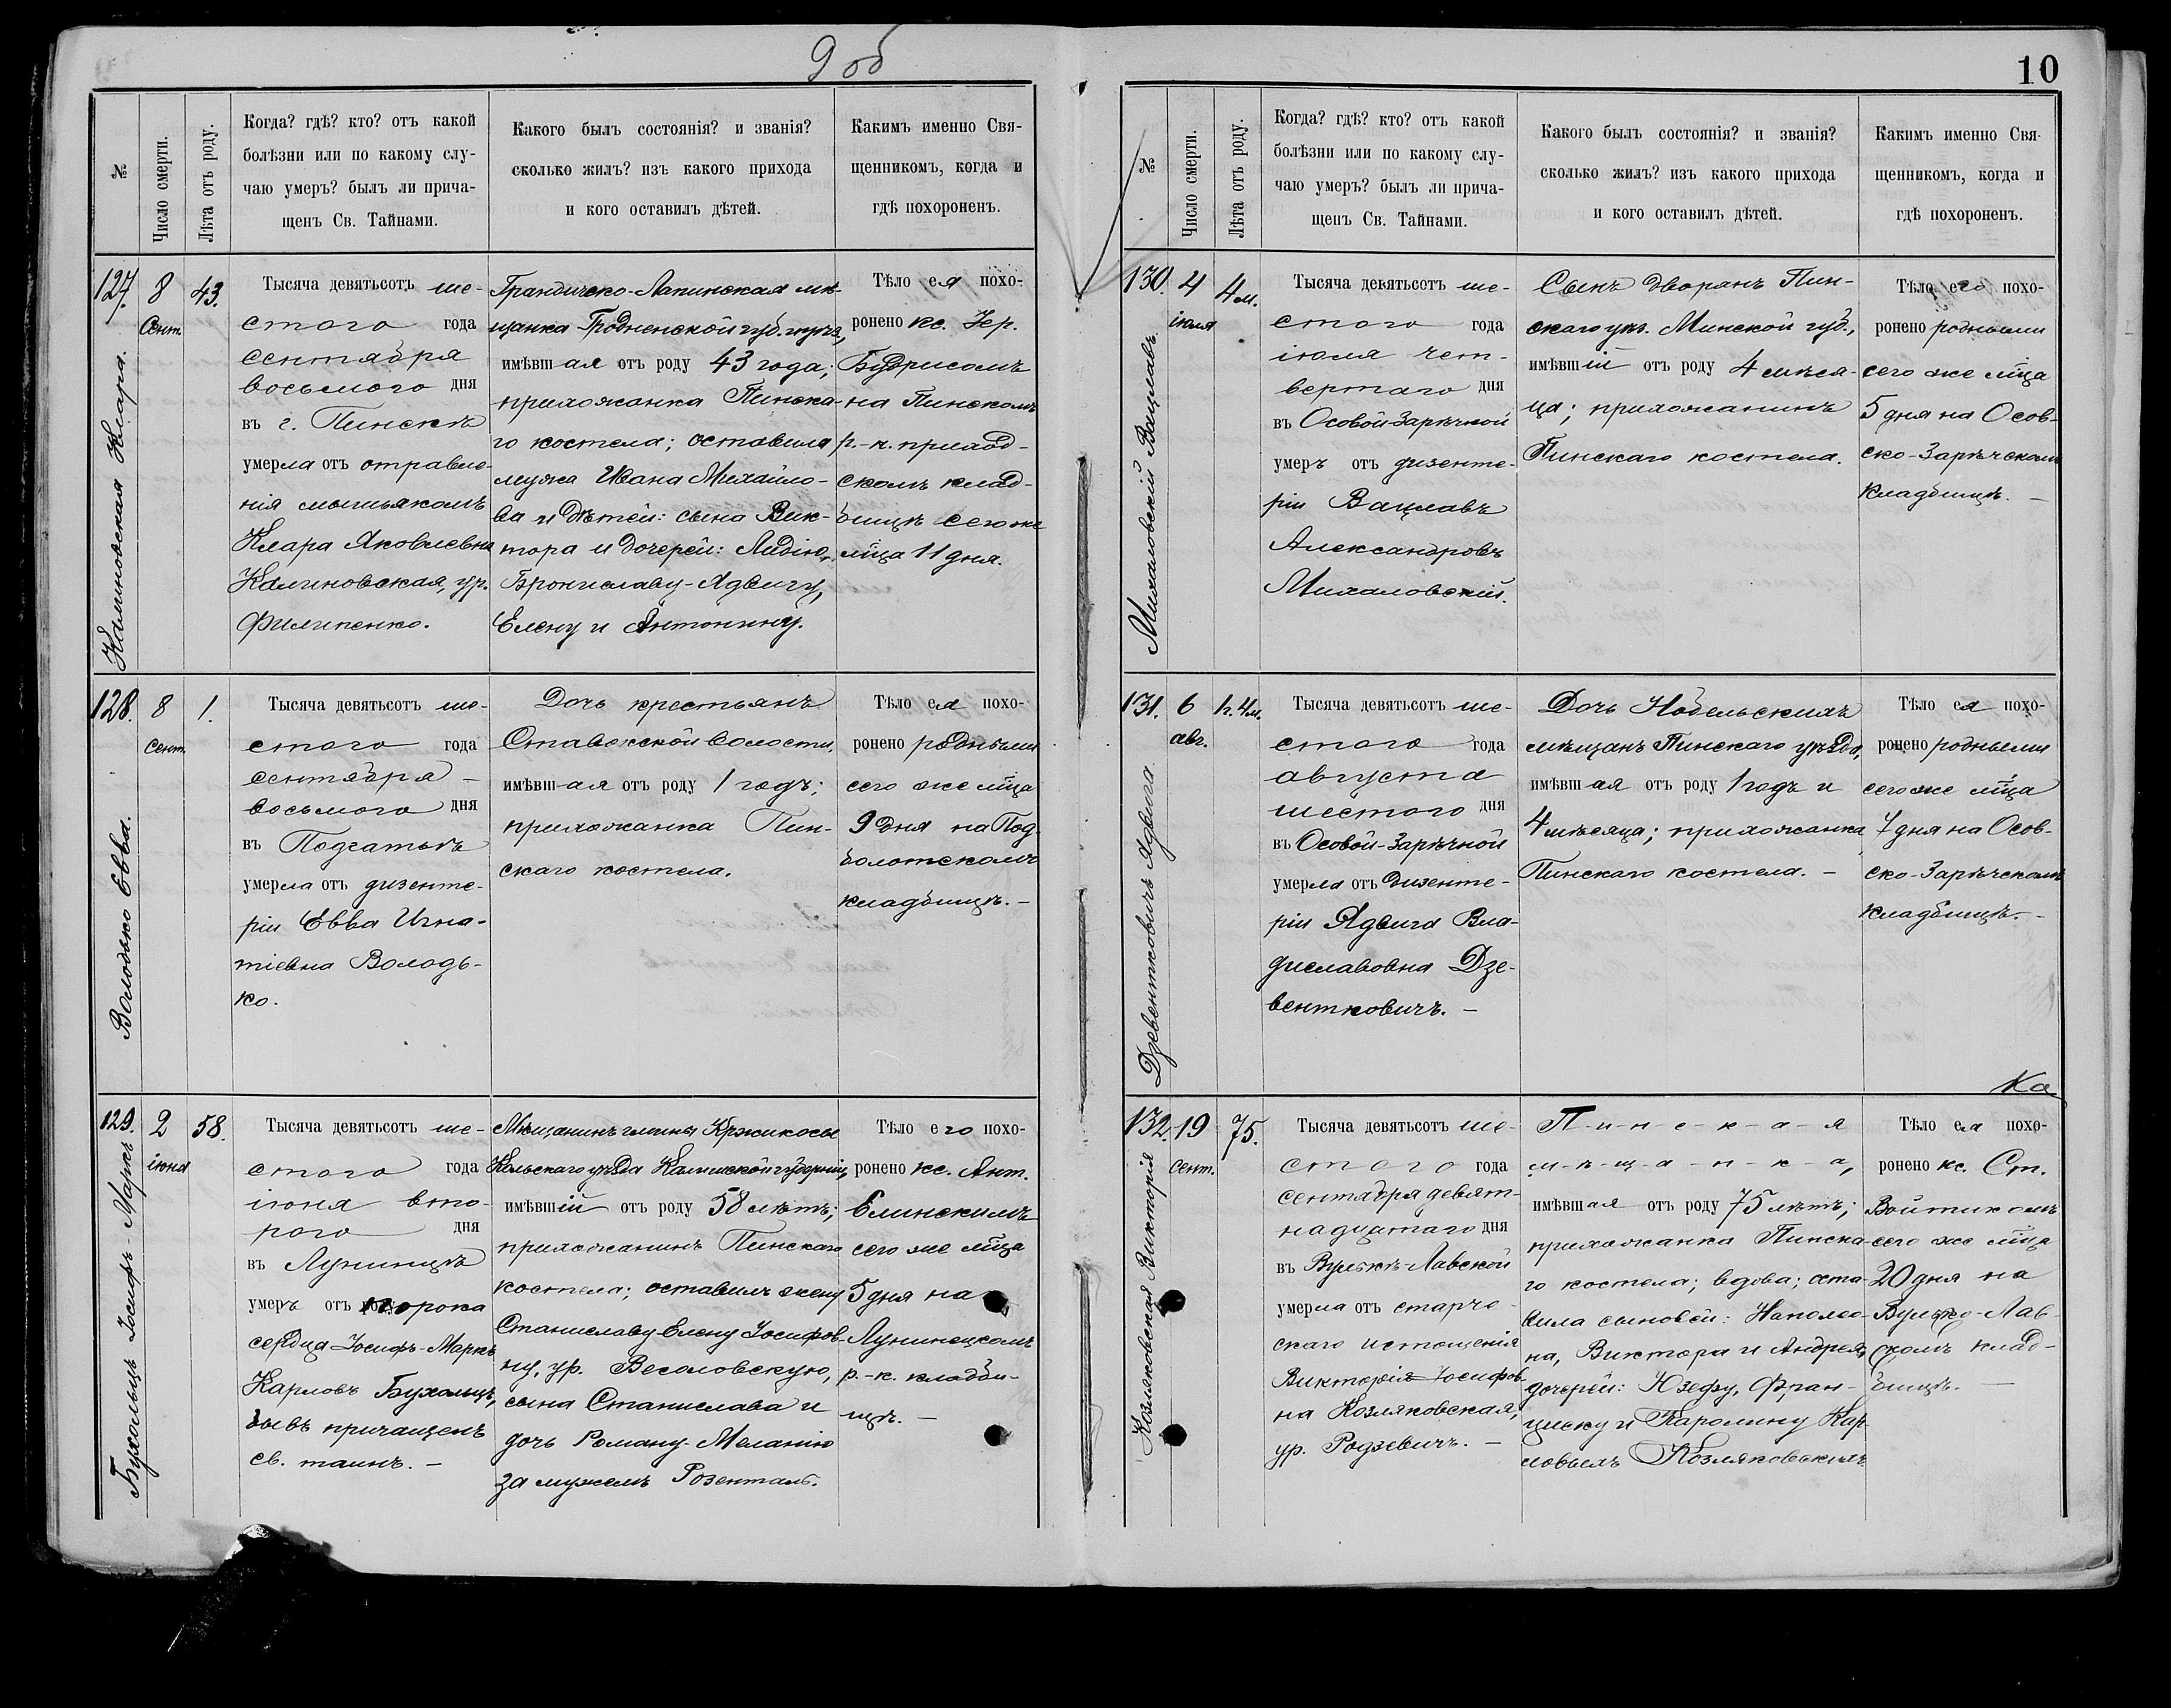 9 об
№
Число смерти.
Лѣта отъ роду.
Когда? гдѣ? кто? отъ какой
болѣзни или по какому слу-
чаю умеръ? былъ ли прича-
щенъ Св. Тайнами.
Какого былъ состоянія? и званія?
сколько жилъ? изъ какого прихода
и кого оставилъ дѣтей.
Какимъ именно Свя-
щенникомъ, когда и
гдѣ похороненъ.
127.
Калиновская Клара.
8
Сент.
43.
Тысяча девятьсотъ ше-
стого года
сентября
восьмого дня
въ г. Пинскѣ
умерла отъ отравле-
нія мышьякомъ
Клара Яковлевна
Калиновская, ур.
Филипенко.
Грандичско-Лапинская мѣ-
щанка Гродненской губ.
имѣвшая отъ роду 43 года;
прихожанка Пинска-
го костела; оставила
мужа Ивана Михайло-
ва и дѣтей: сына Вик-
тора и дочерей: Лидію,
Брониславу-Ядвигу,
Елену и Антонину.
Тѣло ея похо-
ронено кс. Іер.
Будрисомъ
на Пинскомъ
р.-к. приход-
скомъ клад-
бищѣ сего же
мѣца 11 дня.
128.
Володько Евва.
8
сент.
1.
Тысяча девятьсотъ ше-
стого года
сентября -
восьмого дня
въ Подгатьѣ
умерла отъ дизенте-
ріи Евва Игна-
тіевна Володь-
ко.
Дочь крестьянъ
Ставокской волости,
имѣвшая отъ роду 1 годъ;
прихожанка Пин-
скаго костела.
Тѣло ея похо-
ронено родными
сего же мѣца
9 дня на Под-
болотскомъ
кладбищѣ. -
129.
Бухольцъ Іосифъ-Маркъ
2
іюня
58.
Тысяча девятьсотъ ше-
стого года
іюня вто-
рого дня
въ Лунинцѣ
умеръ отъ порока
сердца Іосифъ-Маркъ
Карловъ Бухольцъ,
бывъ причащенъ
св. таинъ. -
Мѣщанинъ гмины Кржикосы
Кольскаго уѣзда Калишской губерніи,
имѣвшій отъ роду 58 лѣтъ;
прихожанинъ Пинскаго
костела; оставилъ жену
Станиславу-Елену Іосифов-
ну, ур. Весоловскую,
сына Станислава и
дочь Роману-Меланію
за мужемъ Розенталь.
Тѣло его похо-
ронено кс. Ант.
Елинскимъ
сего же мѣца
5 дня на
Лунинецкомъ
р.-к. кладби-
щѣ. -
10
№
Число смерти.
Лѣта отъ роду.
Когда? гдѣ? кто? отъ какой
болѣзни или по какому слу-
чаю умеръ? былъ ли прича-
щенъ Св. Тайнами.
Какого былъ состоянія? и званія?
сколько жилъ? изъ какого прихода
и кого оставилъ дѣтей.
Какимъ именно Свя-
щенникомъ, когда и
гдѣ похороненъ.
130.
Михаловскій Вацлавъ
4
іюля
4 м.
Тысяча девятьсотъ ше-
стого года
іюля чет-
вертаго дня
въ Особой-Зарѣчной
умеръ отъ дизенте-
ріи Вацлавъ
Александровъ
Михаловскій.
Сынъ дворянъ Пин-
скаго уѣз. Минской губ.,
имѣвшій отъ роду 4 мѣся-
ца; прихожанинъ
Пинскаго костела.
Тѣло его похо-
ронено родными
сего же мѣца
5 дня на Осов-
ско-Зарѣчскомъ
кладбищѣ. -
131.
Дзевентковичъ Ядвига
6
авг.
1 г. 4 м.
Тысяча девятьсотъ ше-
стого года
августа
шестого дня
въ Особой-Зарѣчной
умерла отъ дизенте-
ріи Ядвига Вла-
диславовна Дзе-
вентковичъ. -
Дочь Нобельскихъ
мѣщанъ Пинскаго уѣзда,
имѣвшая отъ роду 1 годъ и
4 мѣсяца; прихожанка
Пинскаго костела. -
Тѣло ея похо-
ронено родными
сего же мѣца
7 дня на Осов-
ско-Зарѣчскомъ
кладбищѣ. -
Ка
132.
Козляковская Викторія
19
сент.
75.
Тысяча девятьсотъ ше-
стого года
сентября девят-
надцатаго дня
въ Вулькѣ-Лавской
умерла отъ старче-
скаго истощенія
Викторія Іосифов-
на Козляковская,
ур. Родзевичъ. -
П-и-н-с-к-а-я
м-ѣ-щ-а-н-к-а,
имѣвшая отъ роду 75 лѣтъ;
прихожанка Пинска-
го костела; вдова; оста-
вила сыновей: Наполео-
на, Виктора и Андрея,
дочерей: Юзефу, Фран-
циску и Каролину Кар-
ловыхъ Козляковскихъ
Тѣло ея похо-
ронено кс. Ст.
Войтикомъ
сего же мѣца
20 дня на
Вулько-Лав-
скомъ клад-
бищѣ. -